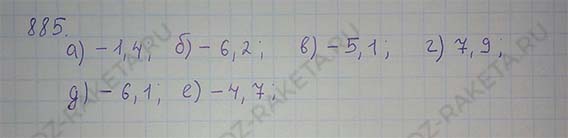 885.
а) -1,4; б) -6,2; в) -5,1; г) 7,9;
д) -6,1; е) -4,7;